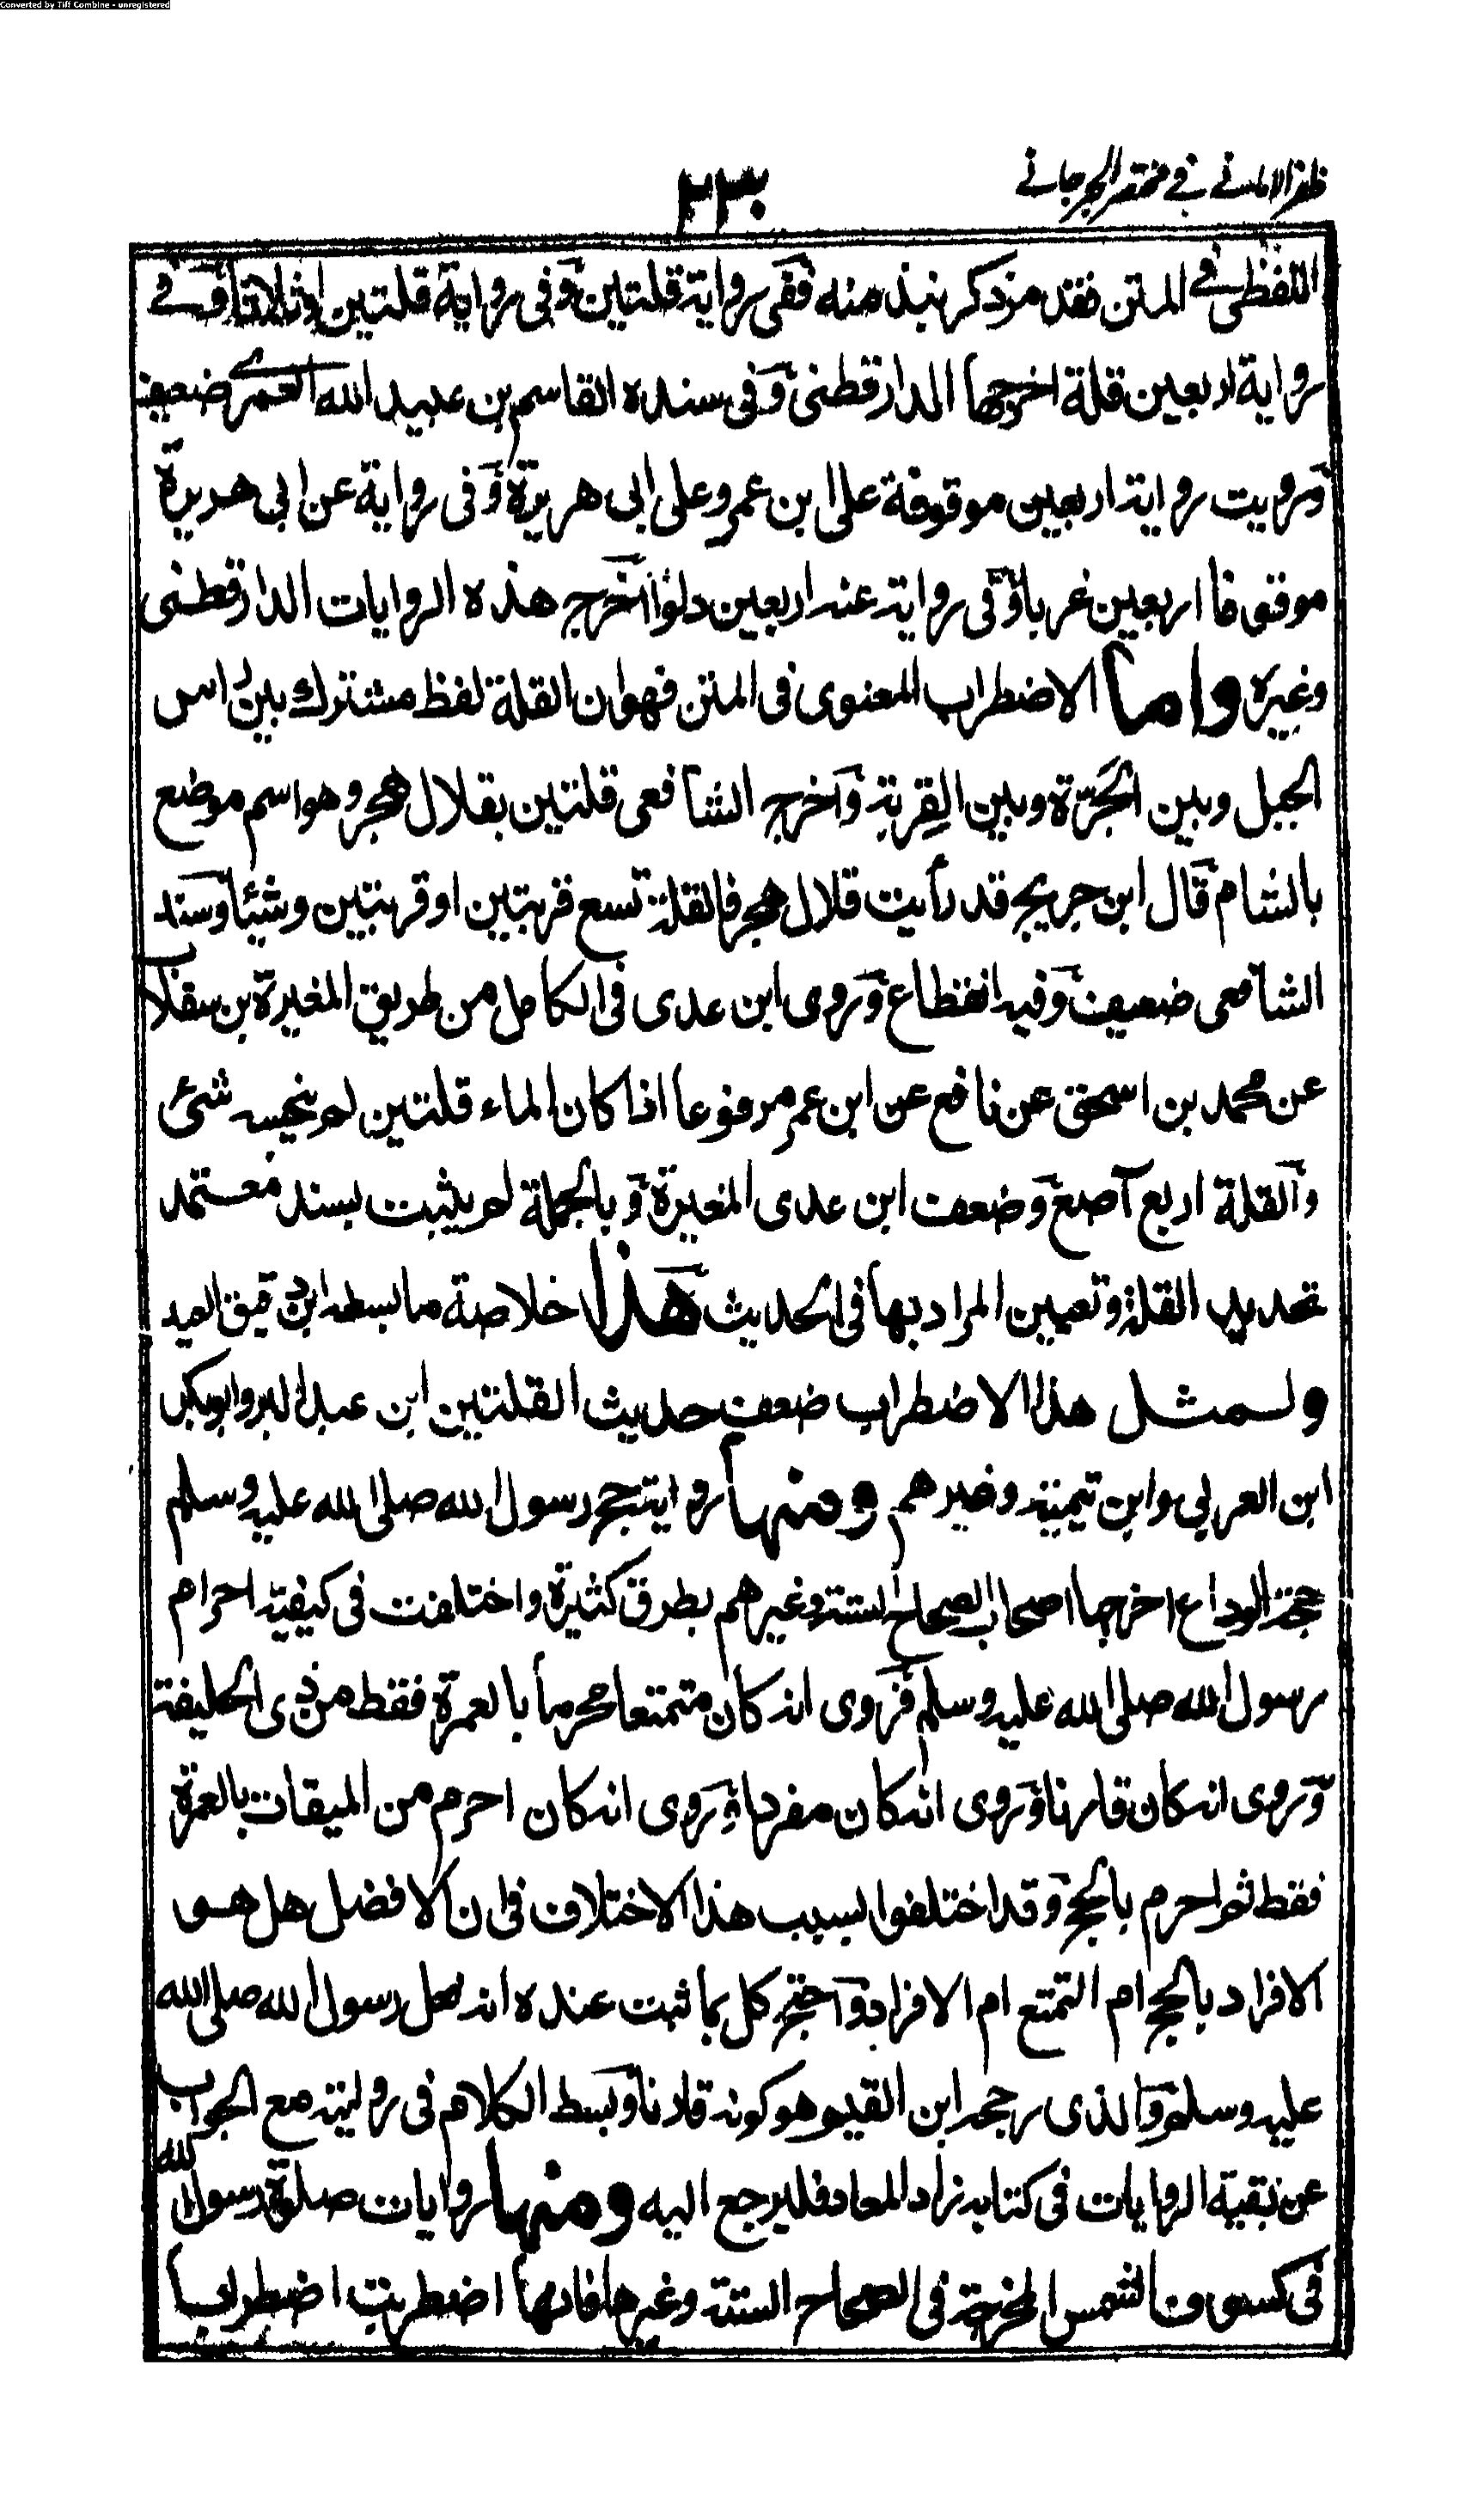 Converted by Tiff Combine - unregistered
ظفر الاماني في مختصر الجرجاني
٢٣٠
اللفظي في المتن فقد مرذكر نبذ منه ففي رواية قلتين وفي رواية قلتين او ثلاثا وفي
رواية اربعين قلة اخرجها الدارقطني وفي سنده القاسم بن عبيد الله العمري ضعيف
ورويت رواية اربعين موقوفة على ابن عمرو وعلى ابي هريرة وفي رواية عن ابي هريرة
موقوفا اربعين غربا وفي رواية عنه اربعين دلوا اخرج هذه الروايات الدارقطني
وغيره واما الاضطراب المعنوي في المتن فهو ان القلة لفظ مشترك بين راس
الجبل وبين الجَرّة وبين القِربة واخرج الشافعي قلتين بقلال هجر وهو اسم موضع
بالشام قال ابن جريج قد رأيت قلال هجر فالقلة تسع قربتين او قربتين وشيئا وسند
الشافعي ضعيف وفيه انقطاع وروى ابن عدي في الكامل من طريق المغيرة بن سقلاب
عن محمد بن اسحق عن نافع عن ابن عمر مرفوعا اذا كان الماء قلتين لم ينجسه شئ
والقلة اربع آصع وضعف ابن عدي المغيرة وبالجملة لم يثبت بسند معتمد
تحديد القلة وتعيين المراد بها في الحديث هذا خلاصة ما بسطه ابن دقيق العيد
ولمثل هذا الاضطراب ضعف حديث القلتين ابن عبد البر وابوبكر
ابن العربي وابن تيمية وغيرهم ومنها رواية حج رسول الله صلى الله عليه وسلم
حجة الوداع اخرجها اصحاب الصحاح الستة وغيرهم بطرق كثيرة واختلفت في كيفية احرام
رسول الله صلى الله عليه وسلم فروى انه كان متمتعا محرما بالعمرة فقط من ذي الحليفة
وروى انه كان قارنا وروى انه كان مفردا وروى انه كان احرم من الميقات بالعمرة
فقط ثم احرم بالحج وقد اختلفوا بسبب هذا الاختلاف في ان الافضل هل هو
الافراد بالحج ام التمتع ام الافراد واحتج كل بما ثبت عنده انه اهل رسول الله صلى الله
عليه وسلم والذي رجحه ابن القيم هو كونه قارنا وبسط الكلام في روايته مع الجواب
عن بقية الروايات في كتابه زاد المعاد فليرجع اليه ومنها روايات صلوة رسول الله
في كسوف الشمس المخرجة في الصحاح الستة وغيرها فانها اضطربت اضطرابا